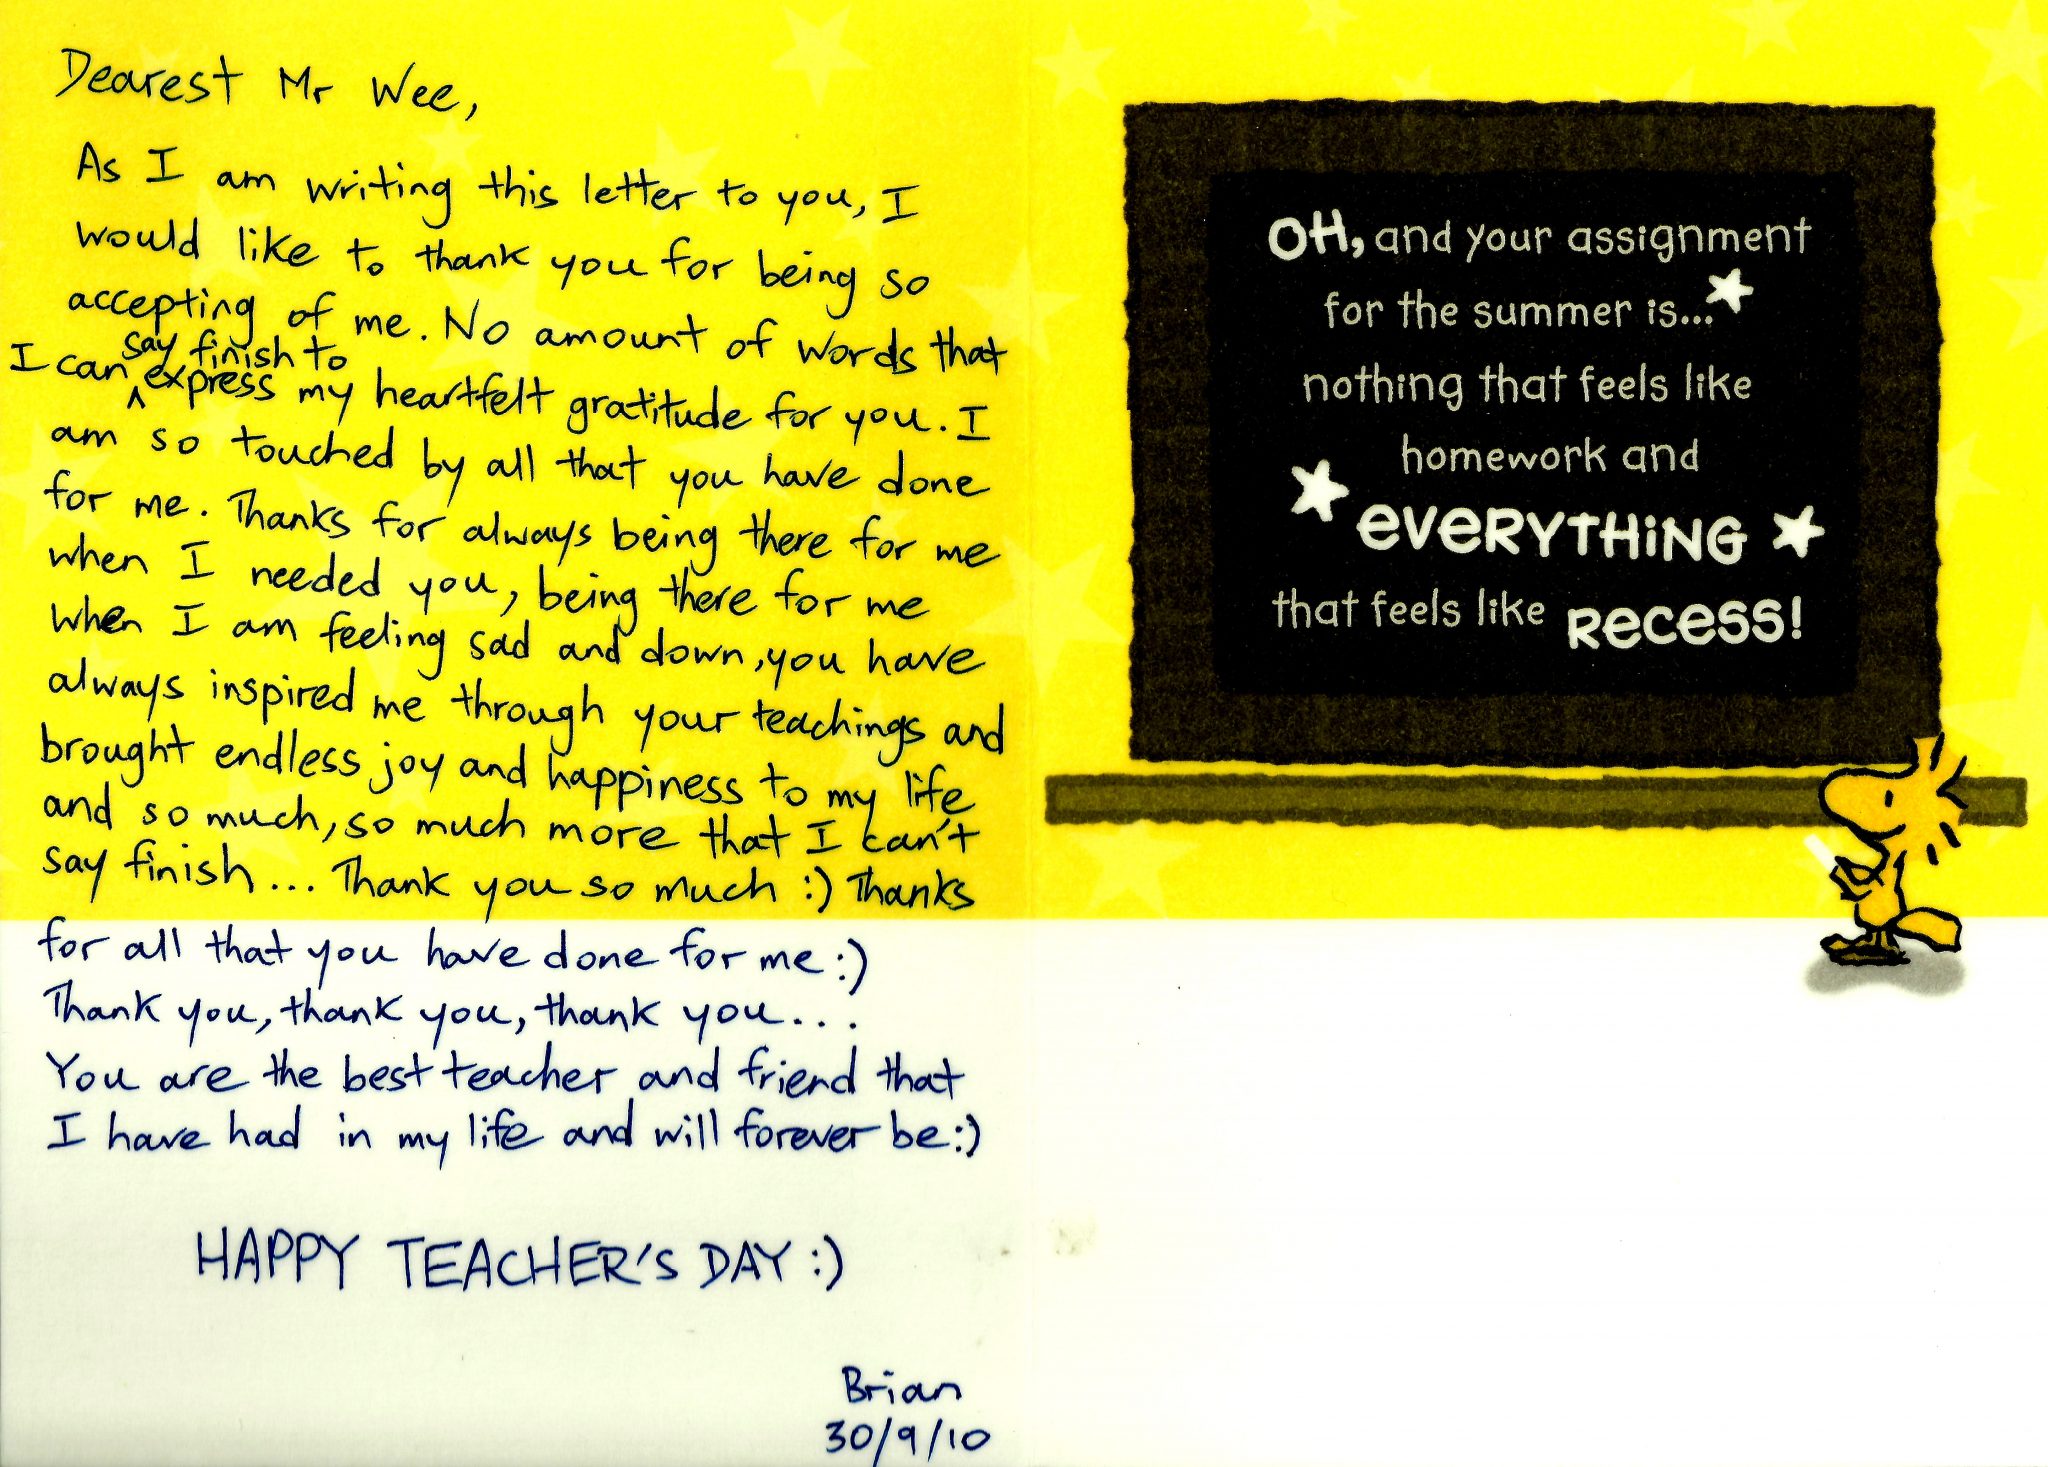 Dearest Mr Wee,
As I am writing this letter to you, I
would like to thank you for being so
accepting of me. No amount of words that
I can say finish to express my heartfelt gratitude for you. I
am so touched by all that you have done
for me. Thanks for always being there for me
when I needed you, being there for me
when I am feeling sad and down, you have
always inspired me through your teachings and
brought endless joy and happiness to my life
and so much, so much more that I can't
say finish... Thank you so much :) Thanks
for all that you have done for me :)
Thank you, thank you, thank you...
You are the best teacher and friend that
I have had in my life and will forever be :)
HAPPY TEACHER'S DAY :)
Brian
30/9/10
OH, and your assignment
for the summer is...
nothing that feels like
homework and
EVERYTHING
that feels like RECESS!